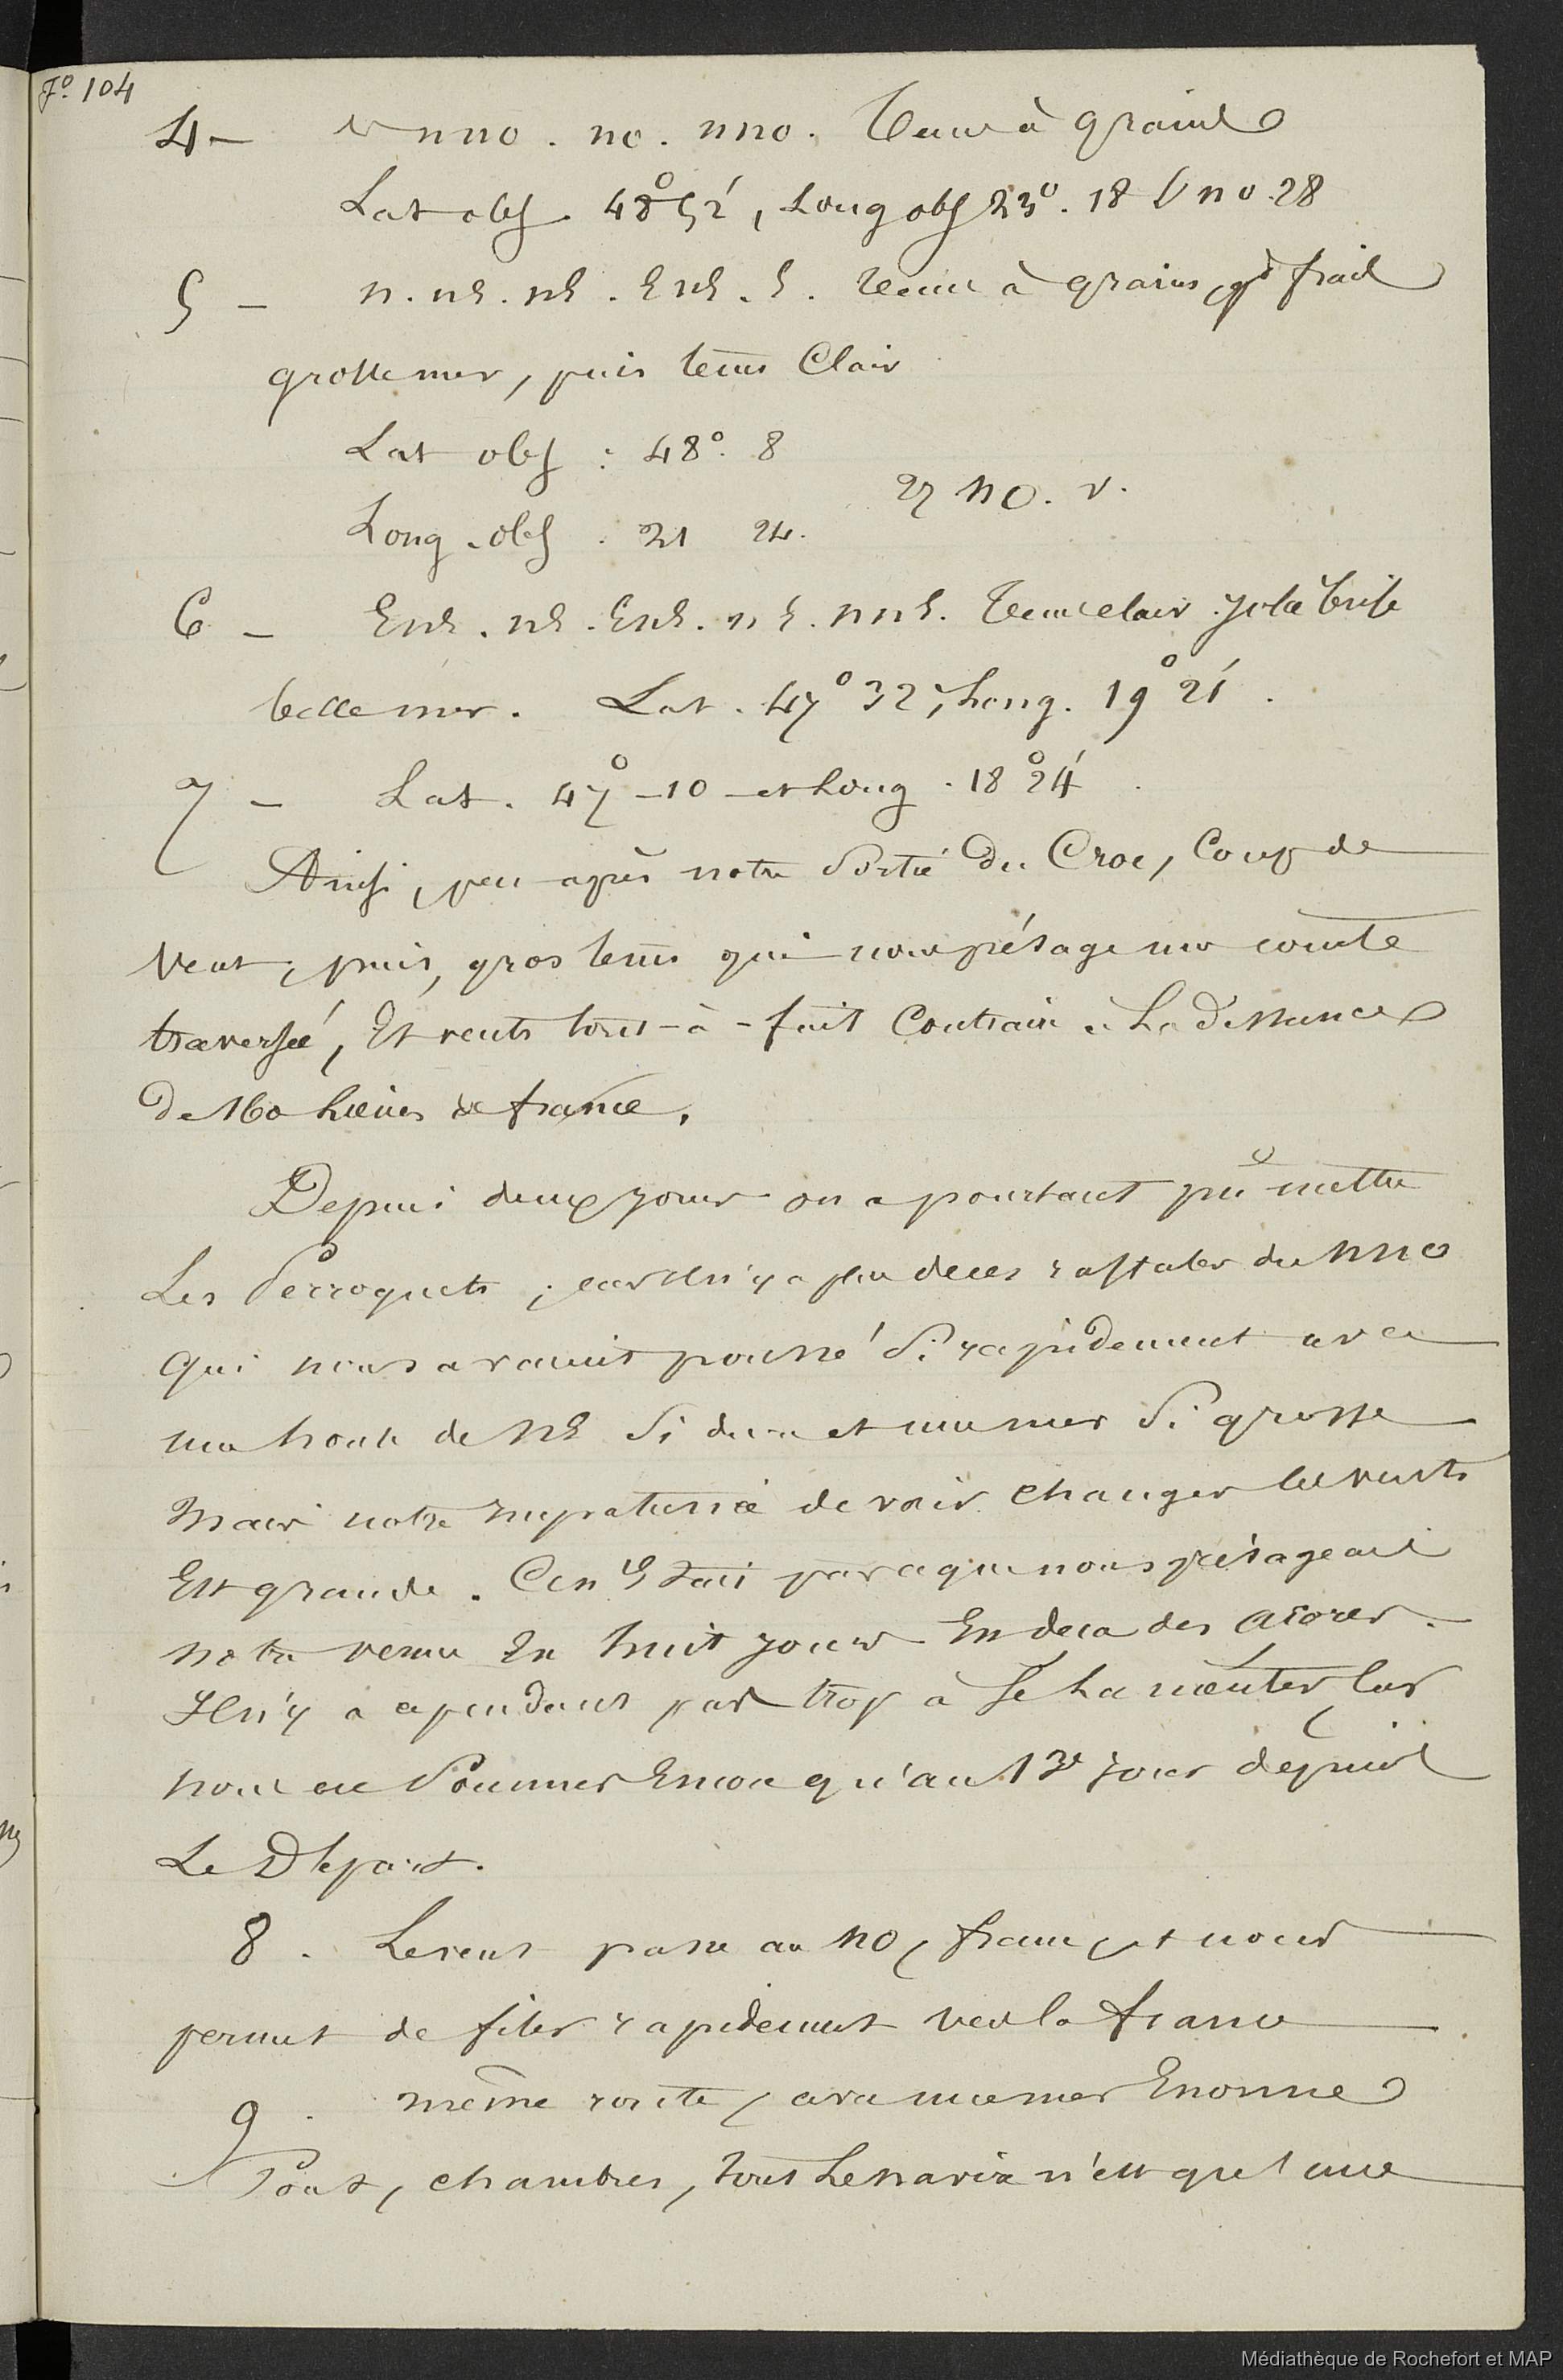 Fo. 104
4 - v nno. no. nno. Tems à grains
Lat obs. 48° 52', Long obs 23°. 18 V no. 28
5 - n. nE. nE. EnE. E. tems à grains, gd frais
grosse mer, puis tems Clair
Lat obs : 48°. 8
27 no. v.
Long. obs. 21 24.
6 - EnE. nE. EnE. nE. nnE. Tems clair jolie brise
belle mer. Lat. 47° 32', Long. 19° 21'.
7 - Lat. 47° - 10 - et Long. 18° 24'.
Ainsi, peu après notre Sortie du Croc, Coup de
Vent, puis, gros tems qui nous présage une courte
traversée, Et vents tout-à-fait Contraire à La distance
De 160 Lieues de france.
Depuis deux jours on a pourtant pû mettre
Les Perroquets ; car il n'y a plu de ces raffales du nno
Qui nous avaient poussé Si rapidement avec
une houle de NE Si dure et une mer Si grosse
Mais notre impatience de voir changer les vents
Est grande. Ce n'Etait pas ce que nous présageait
notre venue En huit jours En deca des acores.
Il n'y a cependant pas trop à Se Lamenter, Car
nous ne Sommes Encore qu'au 13e jour depuis
Le Départ.
8. Le vent passe au NO, franc, et nous
permet de filer rapidement vers la france
9. même route, avec une mer Enorme
Pont, chambres, tout Le navire n'est qu'une
Médiathèque de Rochefort et MAP